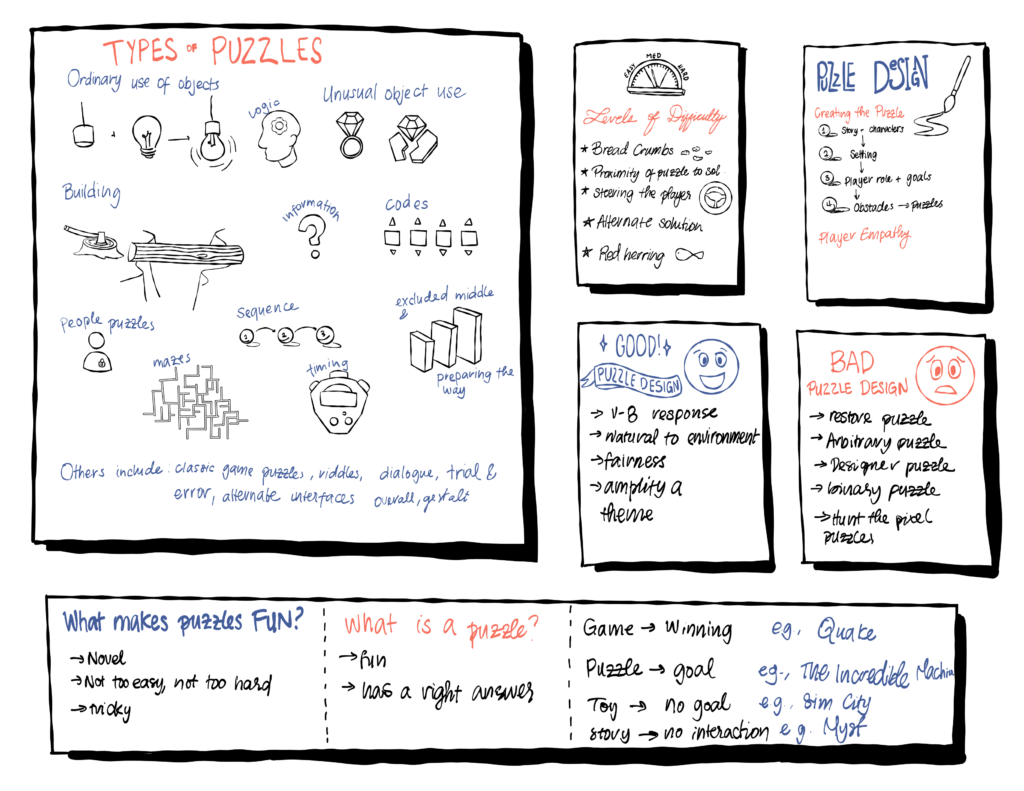 TYPES OF PUZZLES
Ordinary use of objects
Logic
Unusual object use
Building
information
codes
People puzzles
sequence
1 2 3
excluded middle
&
preparing the
way
mazes
timing
Others include: classic game puzzles, riddles, dialogue, trial &
error, alternate interfaces overall, gestalt
EASY MED HARD
Levels of Difficulty
* Bread Crumbs
* Proximity of puzzle to sol
* Steering the player
* Alternate solution
* Red herring
PUZZLE DESIGN
Creating the Puzzle
1 Story + characters
2 Setting
3 Player role + goals
4 Obstacles → puzzles
Player Empathy
GOOD!
PUZZLE DESIGN
→ V-B response
→ natural to environment
→ fairness
→ amplify a
theme
BAD
PUZZLE DESIGN
→ restore puzzle
→ Arbitrary puzzle
→ Designer puzzle
→ binary puzzle
→ Hunt the pixel
puzzles
What makes puzzles FUN?
→ Novel
→ Not too easy, not too hard
→ tricky
What is a puzzle?
→ fun
→ has a right answer
Game → Winning eg, Quake
Puzzle → goal eg., The Incredible Machine
Toy → no goal e.g., Sim City
Story → no interaction e.g. Myst